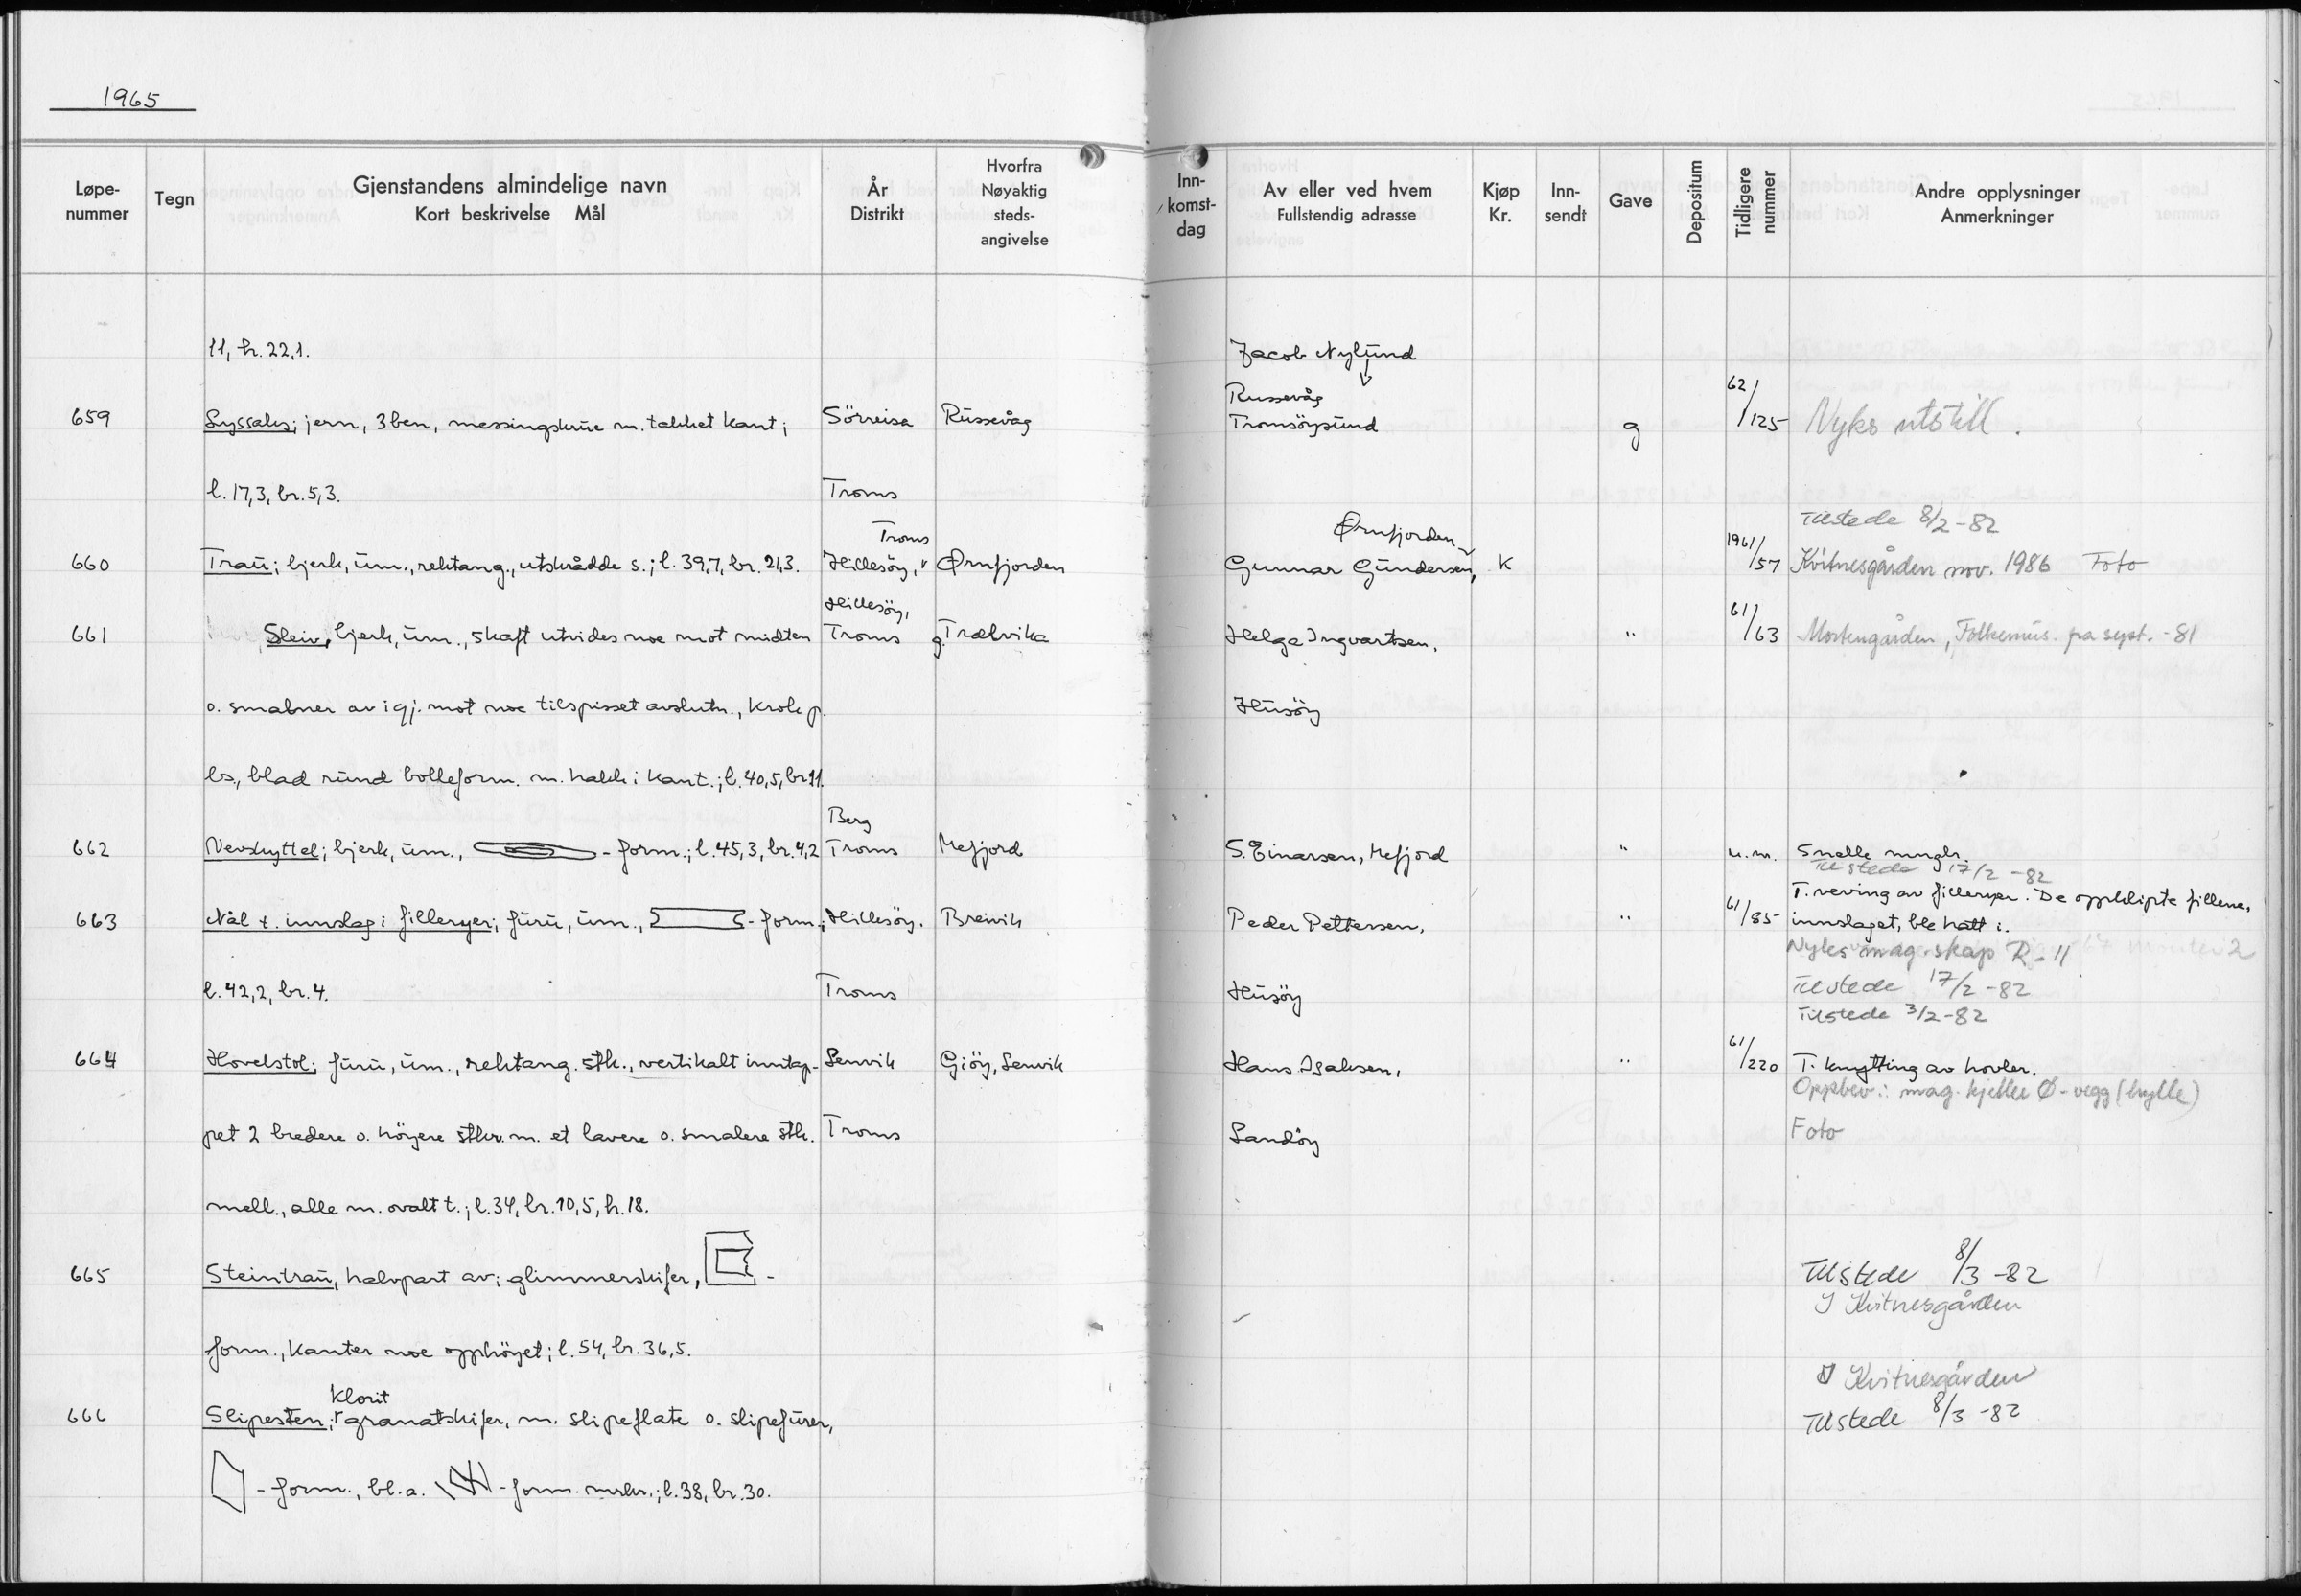 1965
Løpe-nummer Tegn Gjenstandens almindelige navn Kort beskrivelse Mål År Distrikt Hvorfra Nøyaktig steds-angivelse Inn-komst-dag Av eller ved hvem Fullstendig adresse Kjøp Kr. Inn-sendt Gave Depositum Tidligere nummer Andre opplysninger Anmerkninger
11, h. 22,1. Jacob Nylund
Russevåg
659 Lyssaks; jern, 3 ben, messingskrue m. takket kant; Sörreisa Russevåg Tromsöysund g 62/125 Nyks utstill.
l. 17,3, br. 5,3. Troms
Troms Ørnfjorden Tilstede 8/2-82
660 Trau; bjerk, um., rektang., utskrådde s.; l. 39,7, br. 21,3. Hillesöy, Ørnfjorden Gunnar Gundersen, K 1961/57 Kvitnesgården nov. 1986 Foto
Hillesöy,
661 Sleiv, bjerk, um., skaft utvides noe mot midten Troms Trælvika Helge Ingvartsen, " 61/63 Mortengården, Folkemus. fra sept. -81
o. smalner av igj. mot noe tilspisset avslutn., krok p. Husöy
bs., blad rund bolleform. m. hakk i kant.; l. 40,5, br 11.
Berg
662 Vevskyttel; bjerk, um., - form.; l. 45,3, br. 4,2 Troms Mefjord S. Einarsen, Mefjord " u.nr. Snelle mngls.
Tilstede 17/2-82
T. veving av filleryer. De oppklipte fillene,
663 Nål t. innslag i filleryer; furu, um., - form.; Hillesöy. Breivik Peder Pettersen, " 61/85 innslaget, ble hatt i.
Nyks mag. skap R-11
l. 42,2, br. 4. Troms Husöy Tilstede 17/2-82
Tilstede 3/2-82
664 Hovelstol; furu, um., rektang. stk., vertikalt inntap- Lenvik Giöy, Lenvik Hans Isaksen, " 61/220 T. knytting av hovler.
Oppbev.: mag. kjeller Ø-vegg (hylle)
pet 2 bredere o. höyere stkr. m. et lavere o. smalere stk. Troms Sandöy Foto
mell., alle m. ovalt t.; l. 34, br. 10,5, h. 18.
665 Steintrau, halvpart av; glimmerskifer, - Tilstede 8/3-82
I Kvitnesgården
form., kanter noe opphöyet; l. 54, br. 36,5.
klorit I Kvitnesgården
666 Slipesten; granatskifer, m. slipeflate o. slipefurer, Tilstede 8/3-82
- form., bl.a. - form. mrkr.; l. 38, br. 30.